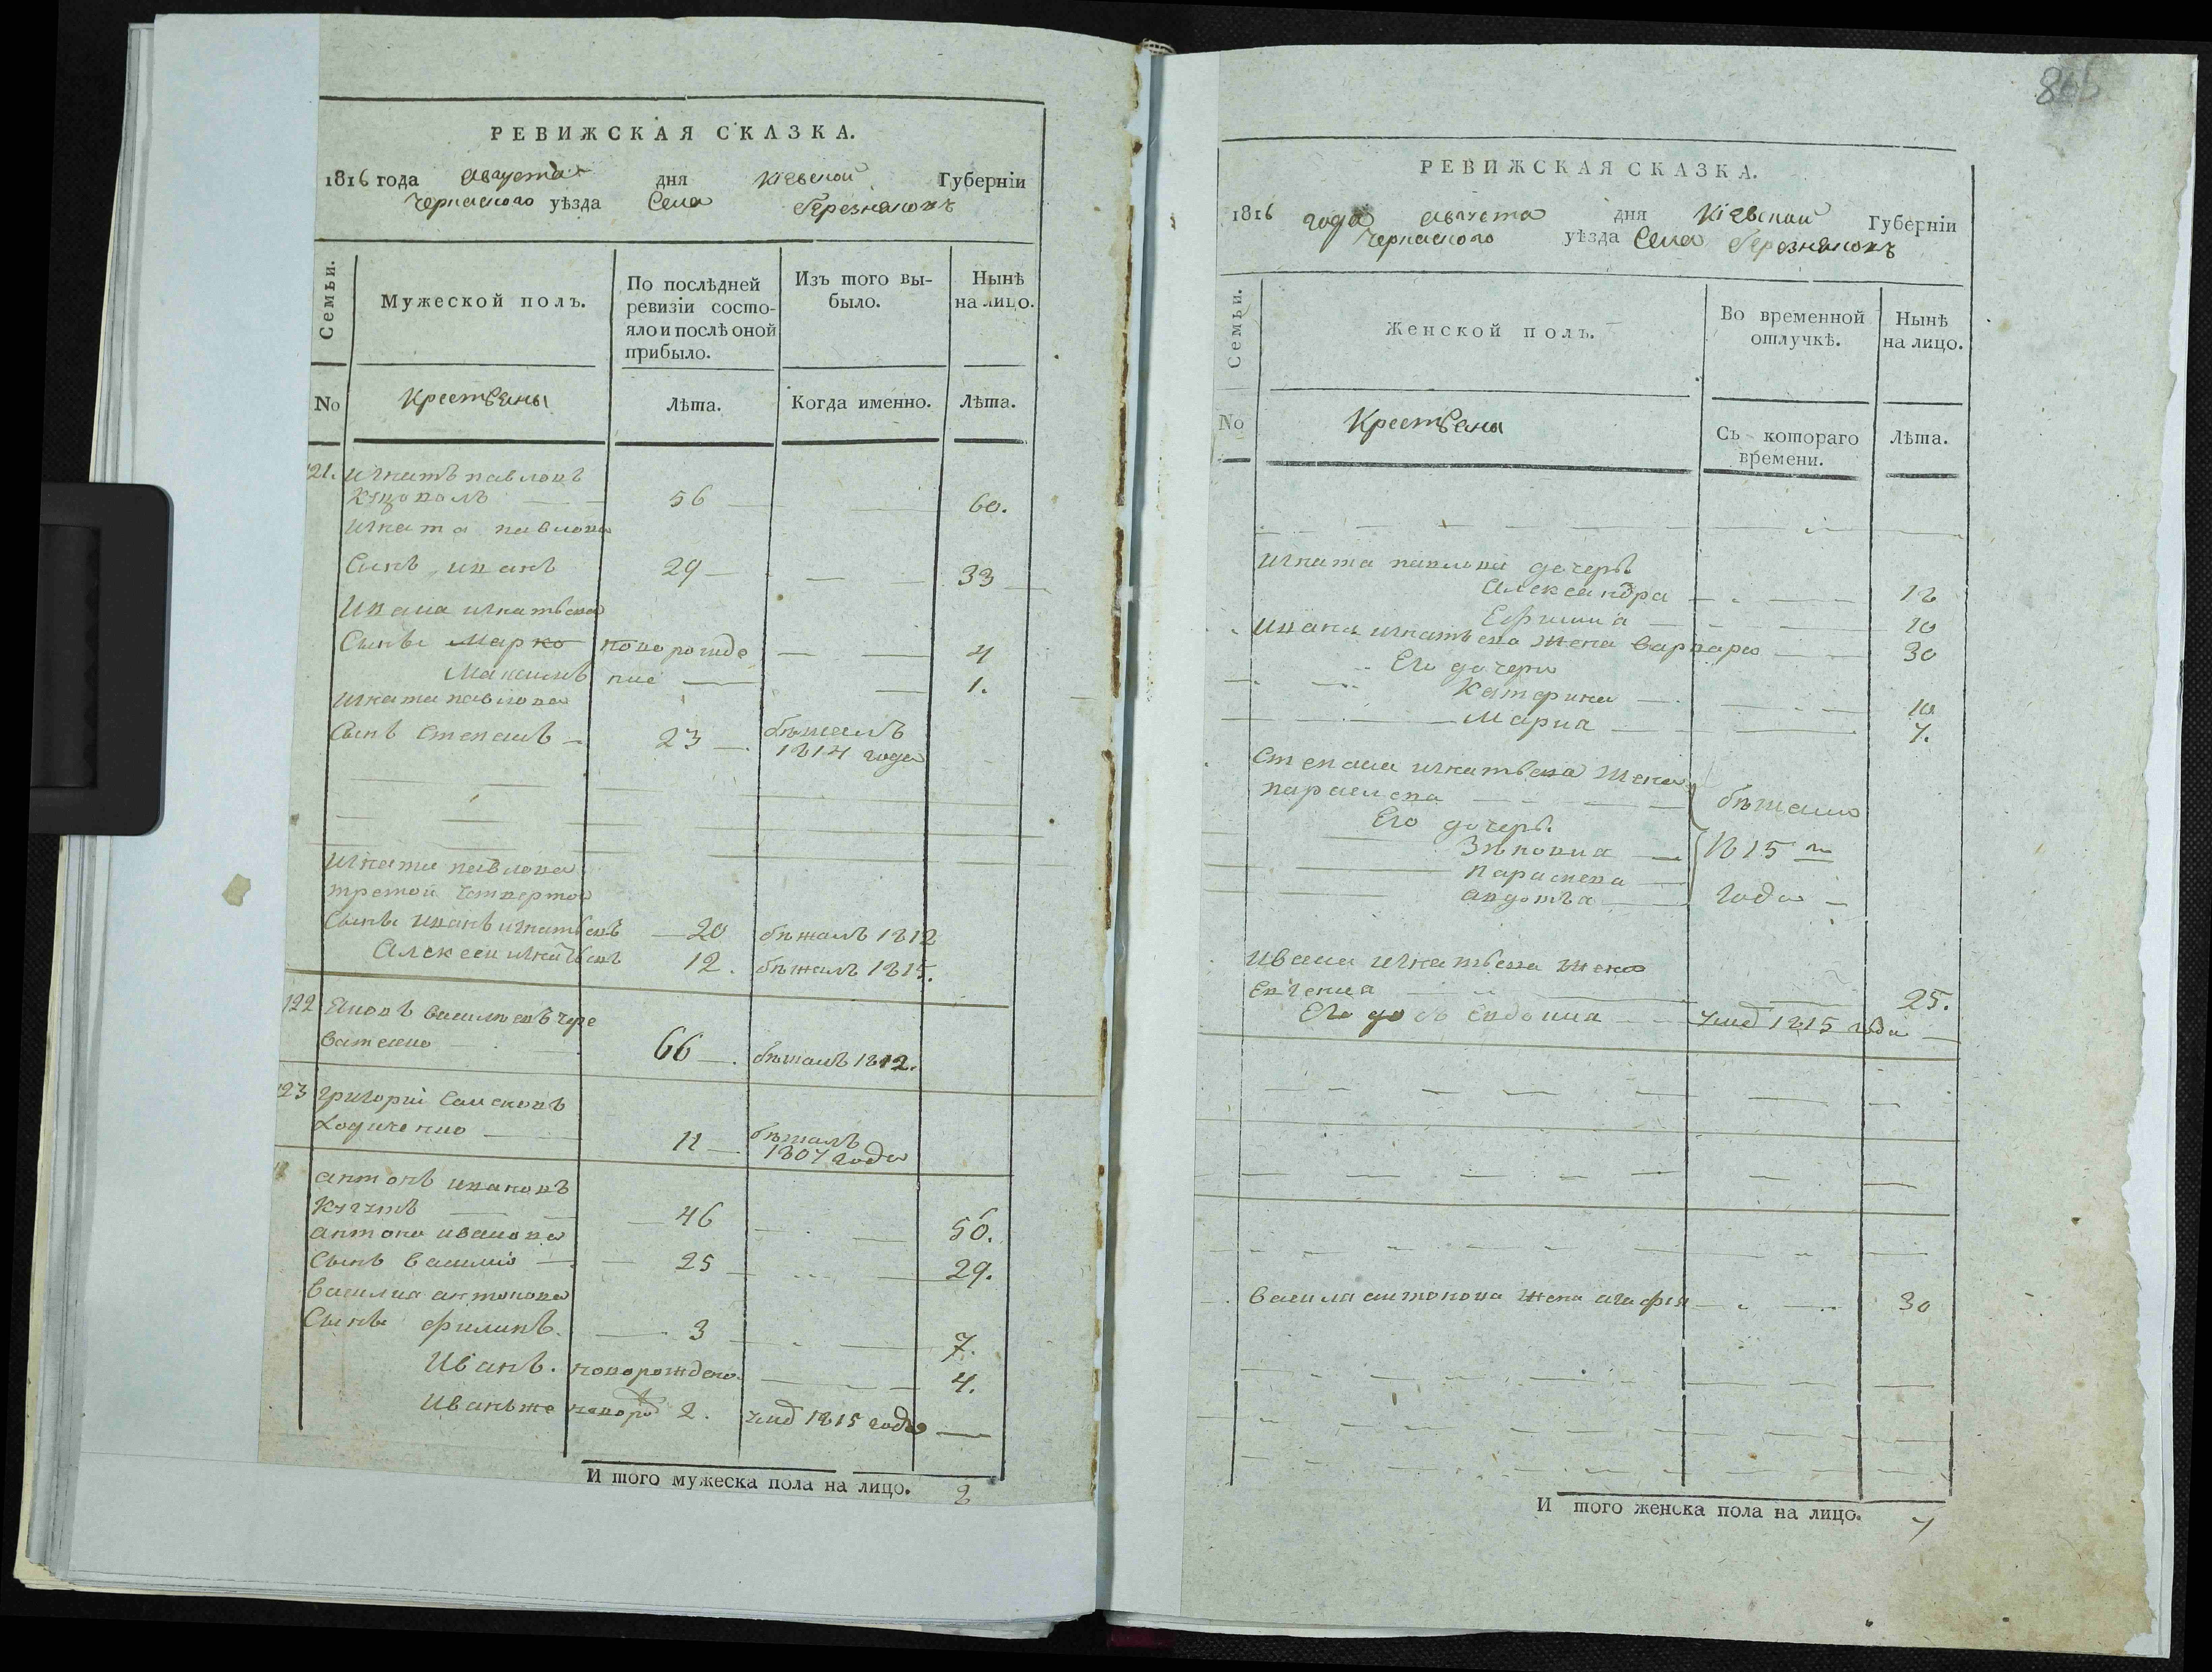 РЕВИЖСКАЯ СКАЗКА.
1816 года августа дня кіевской Губерніи
черкаского уѣзда Села березняковъ
Семьи.
Мужеской полъ.
По послѣдней
ревизіи состо-
яло и послѣ оной
прибыло.
Изъ того вы-
было.
Нынѣ
на лицо.
No
Крестьяны
Лѣта.
Когда именно.
Лѣта.
121. игнатъ павловъ
56 60.
игната павлова
Сынъ иванъ 29 33
Ивана игнатьева
Сынъ Марко новорожде 4
Максимъ ние 1.
игната павлова
Сынъ Степанъ 23 бѣжалъ
1814 года
игната павлова
третой четвертой
Сынъ иванъ игнатьевъ 20 бѣжалъ 1812
Алексей игнатьевъ 12. бѣжалъ 1815.
122 Яковъ васильевъ чере
ватенко 66 бѣжалъ 1812.
123 григорий
11 бѣжалъ
1807 года
антонъ ивановъ
46 50.
антона иванова
Сынъ василий 25 29.
василия антонова
Сынъ филипъ. 3 7.
Иванъ. новорождено. 4.
Иванъ же новоро 2. умер 1815 года
И того мужеска пола на лицо. 8
865
РЕВИЖСКАЯ СКАЗКА.
1816 года августа дня кіевской Губерніи
черкаского уѣзда Села березняковъ
Семьи.
Женской полъ.
Во временной
отлучкѣ.
Нынѣ
на лицо.
No
Крестьяны
Съ котораго
времени.
Лѣта.
игната павлова дочеръ
Александра 12
Ефимиа 10
ивана игнатьева жена варвара 30
Его дочери
Катерина 10
Мариа 7.
Степана игнатьева жена
параскева бѣжали
Его дочеръ.
Зѣновиа 1815 го
параскева
авдотьа года
ивана игнатьева жена
Евгениа 25.
Его дочь умер 1815 года
василя антонова жена агафія 30
И того женска пола на лицо. 7